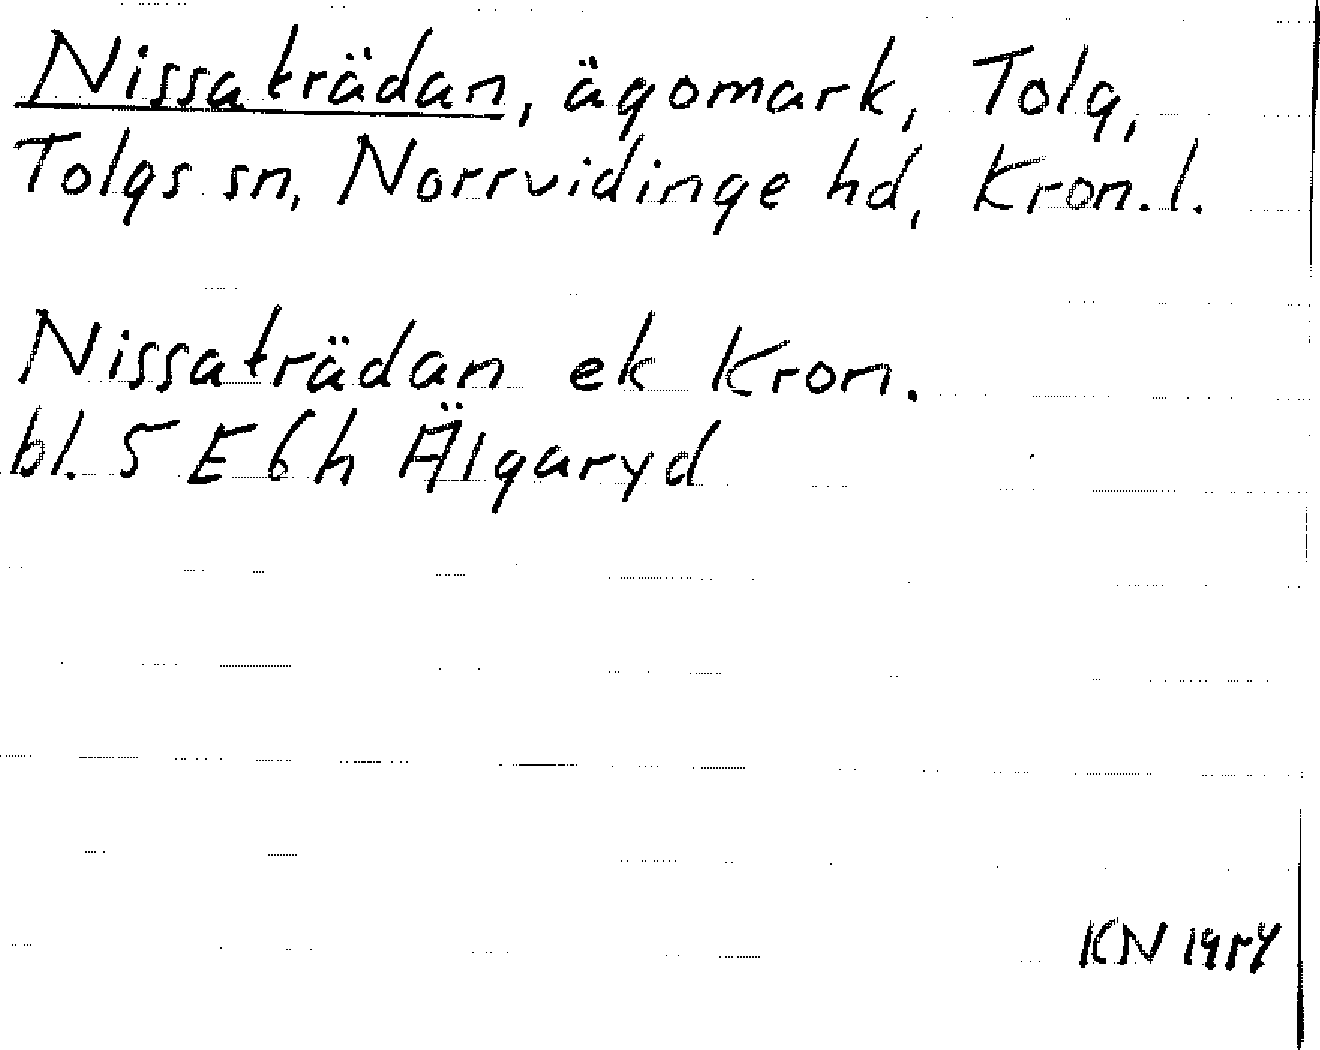 Nissaträdan, ägomark, Tolg,
Tolgs sn, Norrvidinge hd, Kron. l.
Nissaträdan ek Kron.
bl. 5 E 6 h Älgaryd
KN